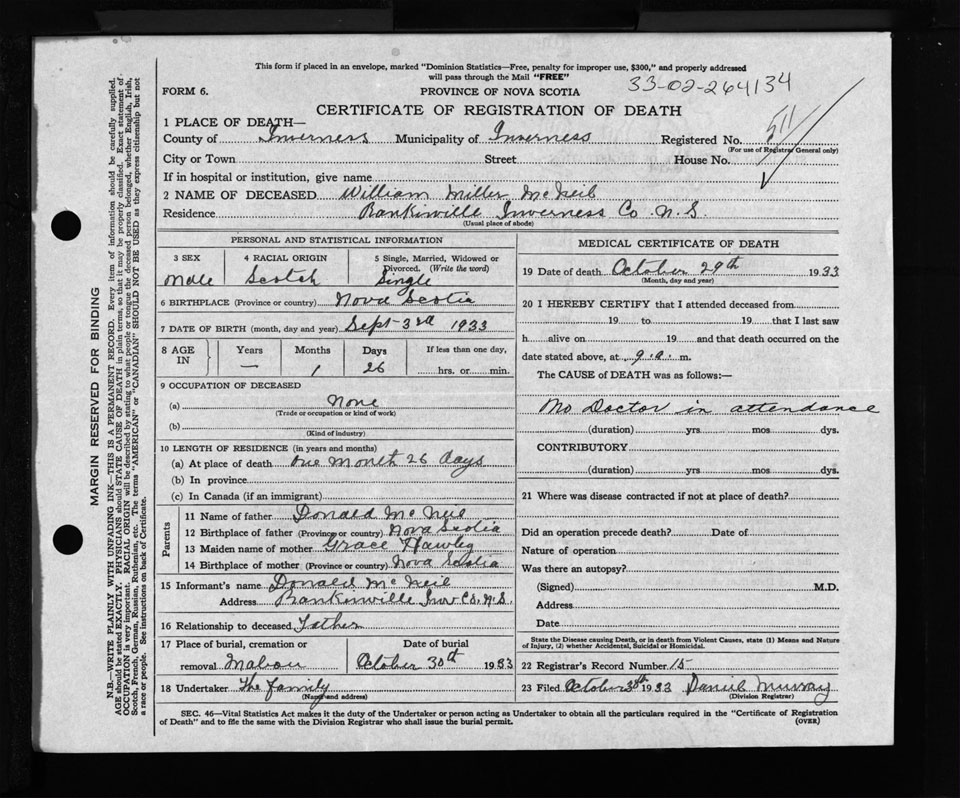 This form if placed in an envelope, marked "Dominion Statistics—Free, penalty for improper use, $300," and properly addressed
will pass through the Mail "FREE"
33-02-264134
FORM 6.
PROVINCE OF NOVA SCOTIA
CERTIFICATE OF REGISTRATION OF DEATH
1 PLACE OF DEATH—
County of Inverness Municipality of Inverness Registered No. 511
(For use of Registrar General only)
City or Town Street House No.
If in hospital or institution, give name
2 NAME OF DECEASED William Miller McNeil
Residence Rankinville Inverness Co. N.S.
(Usual place of abode)
PERSONAL AND STATISTICAL INFORMATION
3 SEX
Male
4 RACIAL ORIGIN
Scotch
5 Single, Married, Widowed or
Divorced. (Write the word)
Single
6 BIRTHPLACE (Province or country) Nova Scotia
7 DATE OF BIRTH (month, day and year) Sept 3rd 1933
8 AGE
IN
Years
—
Months
1
Days
26
If less than one day,
hrs. or min.
9 OCCUPATION OF DECEASED
(a) None
(Trade or occupation or kind of work)
(b)
(Kind of industry)
10 LENGTH OF RESIDENCE (in years and months)
(a) At place of death one month 26 days
(b) In province
(c) In Canada (if an immigrant)
Parents
11 Name of father Donald McNeil
12 Birthplace of father (Province or country) Nova Scotia
13 Maiden name of mother Grace Hawley
14 Birthplace of mother (Province or country) Nova Scotia
15 Informant's name Donald McNeil
Address Rankinville Inv. Co. N.S.
16 Relationship to deceased Father
17 Place of burial, cremation or
removal Mabou
Date of burial
October 30th 1933
18 Undertaker The Family
(Name and address)
MEDICAL CERTIFICATE OF DEATH
19 Date of death October 29th 1933
(Month, day and year)
20 I HEREBY CERTIFY that I attended deceased from
19 to 19 that I last saw
h alive on 19 and that death occurred on the
date stated above, at 9 a. m.
The CAUSE of DEATH was as follows:—
No Doctor in attendance
(duration) yrs mos dys.
CONTRIBUTORY
(duration) yrs mos dys.
21 Where was disease contracted if not at place of death?
Did an operation precede death? Date of
Nature of operation
Was there an autopsy?
(Signed) M.D.
Address
Date
State the Disease causing Death, or in death from Violent Causes, state (1) Means and Nature
of Injury, (2) whether Accidental, Suicidal or Homicidal.
22 Registrar's Record Number 15
23 Filed October 30th 1933 Daniel Murray
(Division Registrar)
SEC. 46—Vital Statistics Act makes it the duty of the Undertaker or person acting as Undertaker to obtain all the particulars required in the "Certificate of Registration
of Death" and to file the same with the Division Registrar who shall issue the burial permit.
(OVER)
MARGIN RESERVED FOR BINDING
N.B—WRITE PLAINLY WITH UNFADING INK—THIS IS A PERMANENT RECORD. Every item of information should be carefully supplied.
AGE should be stated EXACTLY. PHYSICIANS should STATE CAUSE OF DEATH in plain terms, so that it may be properly classified. Exact statement of
OCCUPATION is very important. RACIAL ORIGIN will be described by stating to what people or tongue the deceased person belonged, whether English, Irish,
Scotch, French, German, Russian, Ruthenian, etc. The terms "AMERICAN" or "CANADIAN" SHOULD NOT BE USED as they express citizenship but not
a race or people. See instructions on back of Certificate.